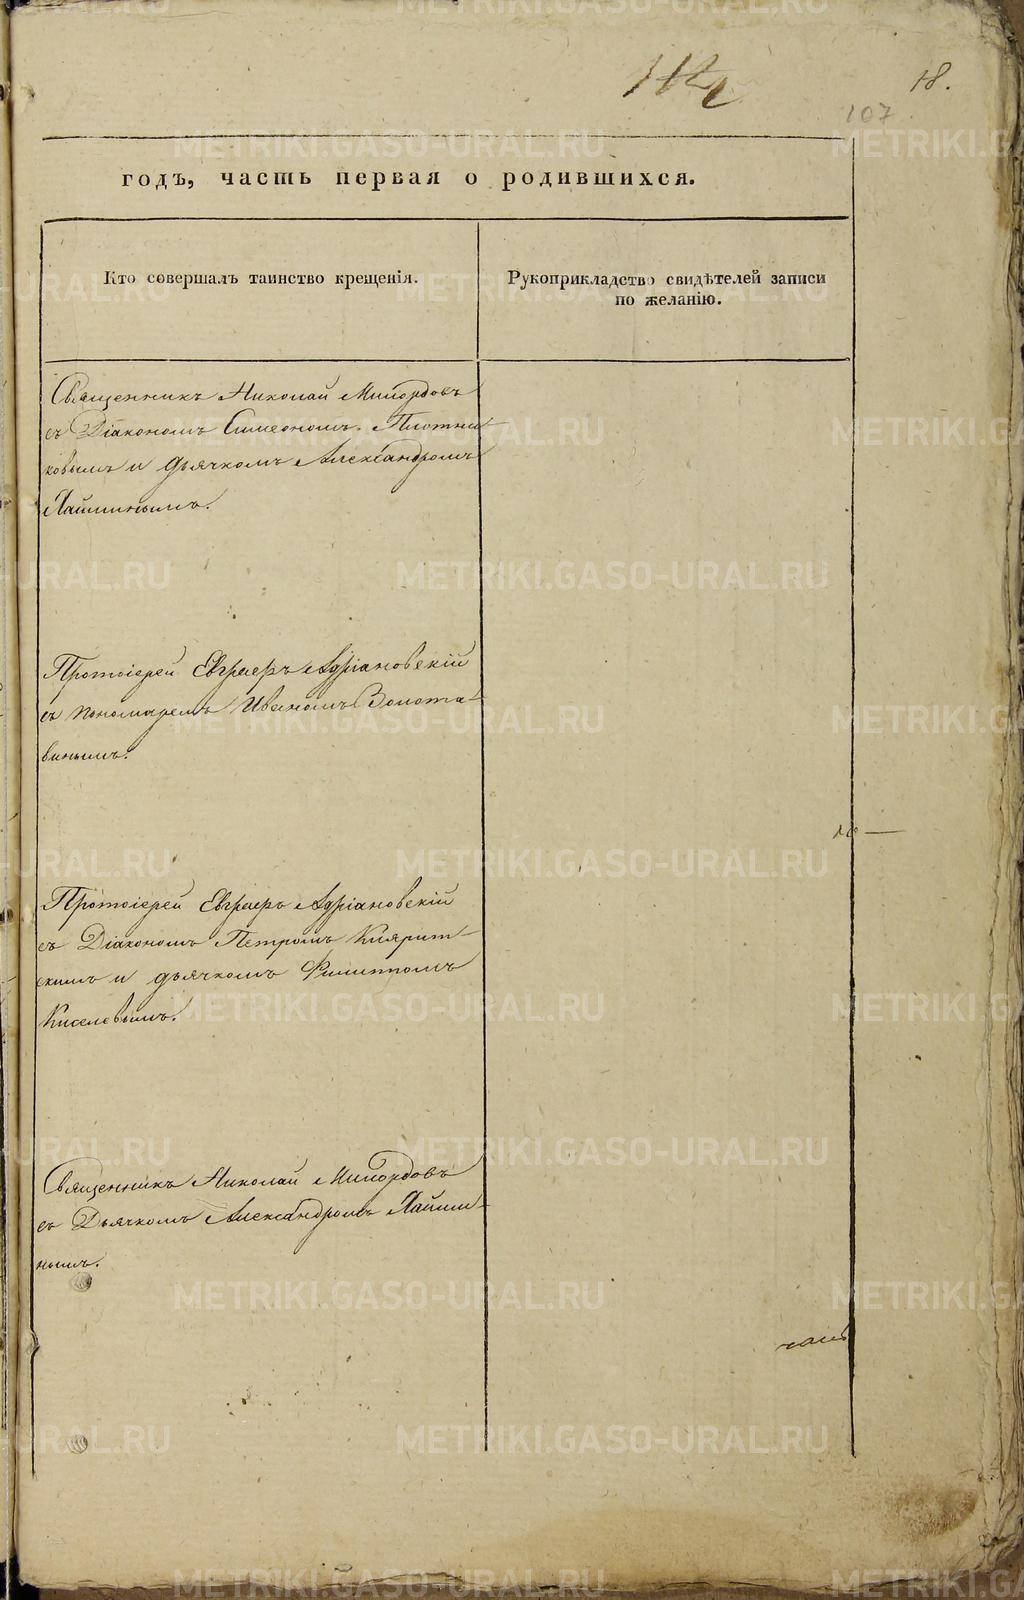 18.
107
годъ, часть первая о родившихся.
Кто совершалъ таинство крещенія.
Рукоприкладство свидѣтелей записи
по желанію.
Священникъ Николай Милордовъ
съ Діакономъ Симеономъ Плотни-
ковымъ и дьячкомъ Александромъ
Лайминымъ.
Протоіерей Евграфъ Адріановскій
съ пономаремъ Иваномъ Золота-
винымъ.
Протоіерей Евграфъ Адріановскій
съ Діакономъ Петромъ
скимъ и дьячкомъ Филиппомъ
Киселевымъ.
Священникъ Николай Милордовъ
съ Дьячкомъ Александромъ Лайми-
нымъ.
METRIKI.GASO-URAL.RU